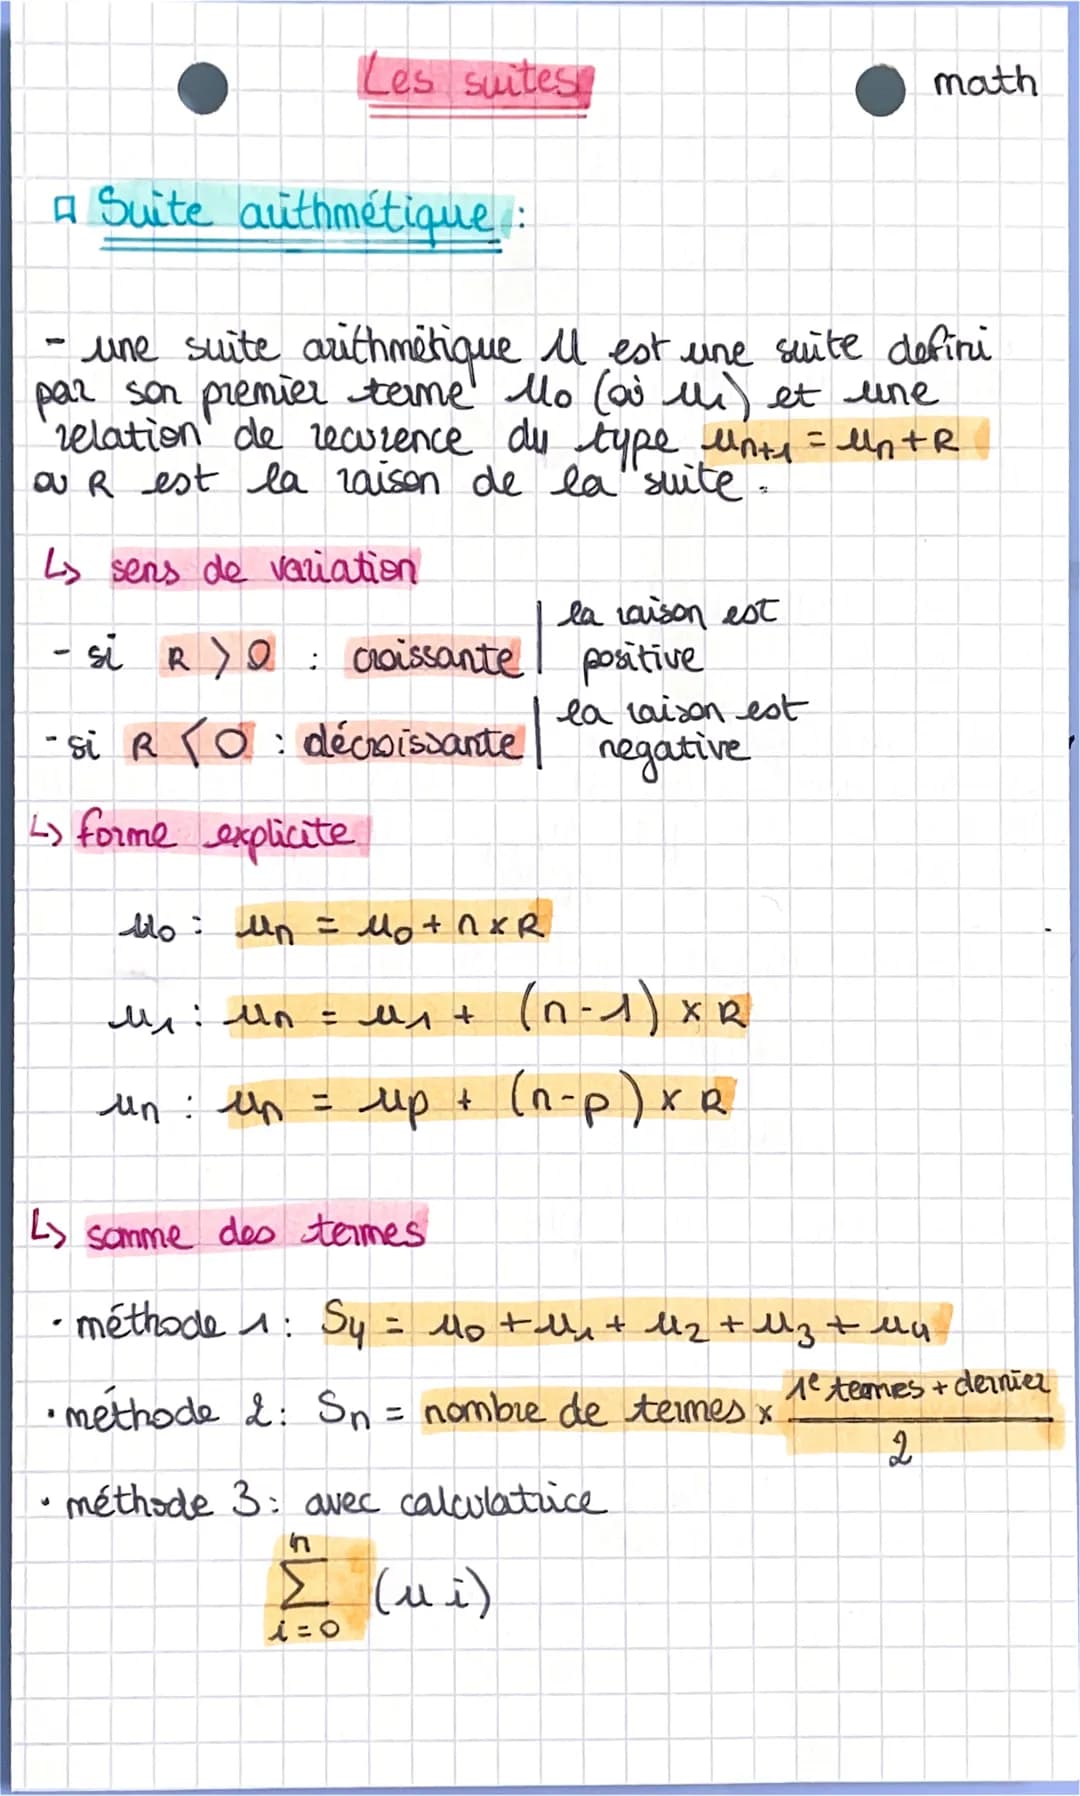 Les suites
math
Suite arithmétique :
- une suite arithmétique U est une suite defini
par son premier terme U0 (où U1) et une
relation de recurence du type Un+1 = Un + R
ou R est la raison de la suite.
↳ sens de variation
- si R > 0 : croissante | la raison est positive
- si R < 0 : décroissante | la raison est negative
↳ forme explicite
U0 : Un = U0 + n x R
U1 : Un = U1 + (n-1) x R
Un : Un = Up + (n-p) x R
↳ somme des termes
• méthode 1 : S4 = U0 + U1 + U2 + U3 + U4
• méthode 2 : Sn = nombre de termes x (1e termes + dernier) / 2
• méthode 3 : avec calculatrice
n
Σ (ui)
i = 0